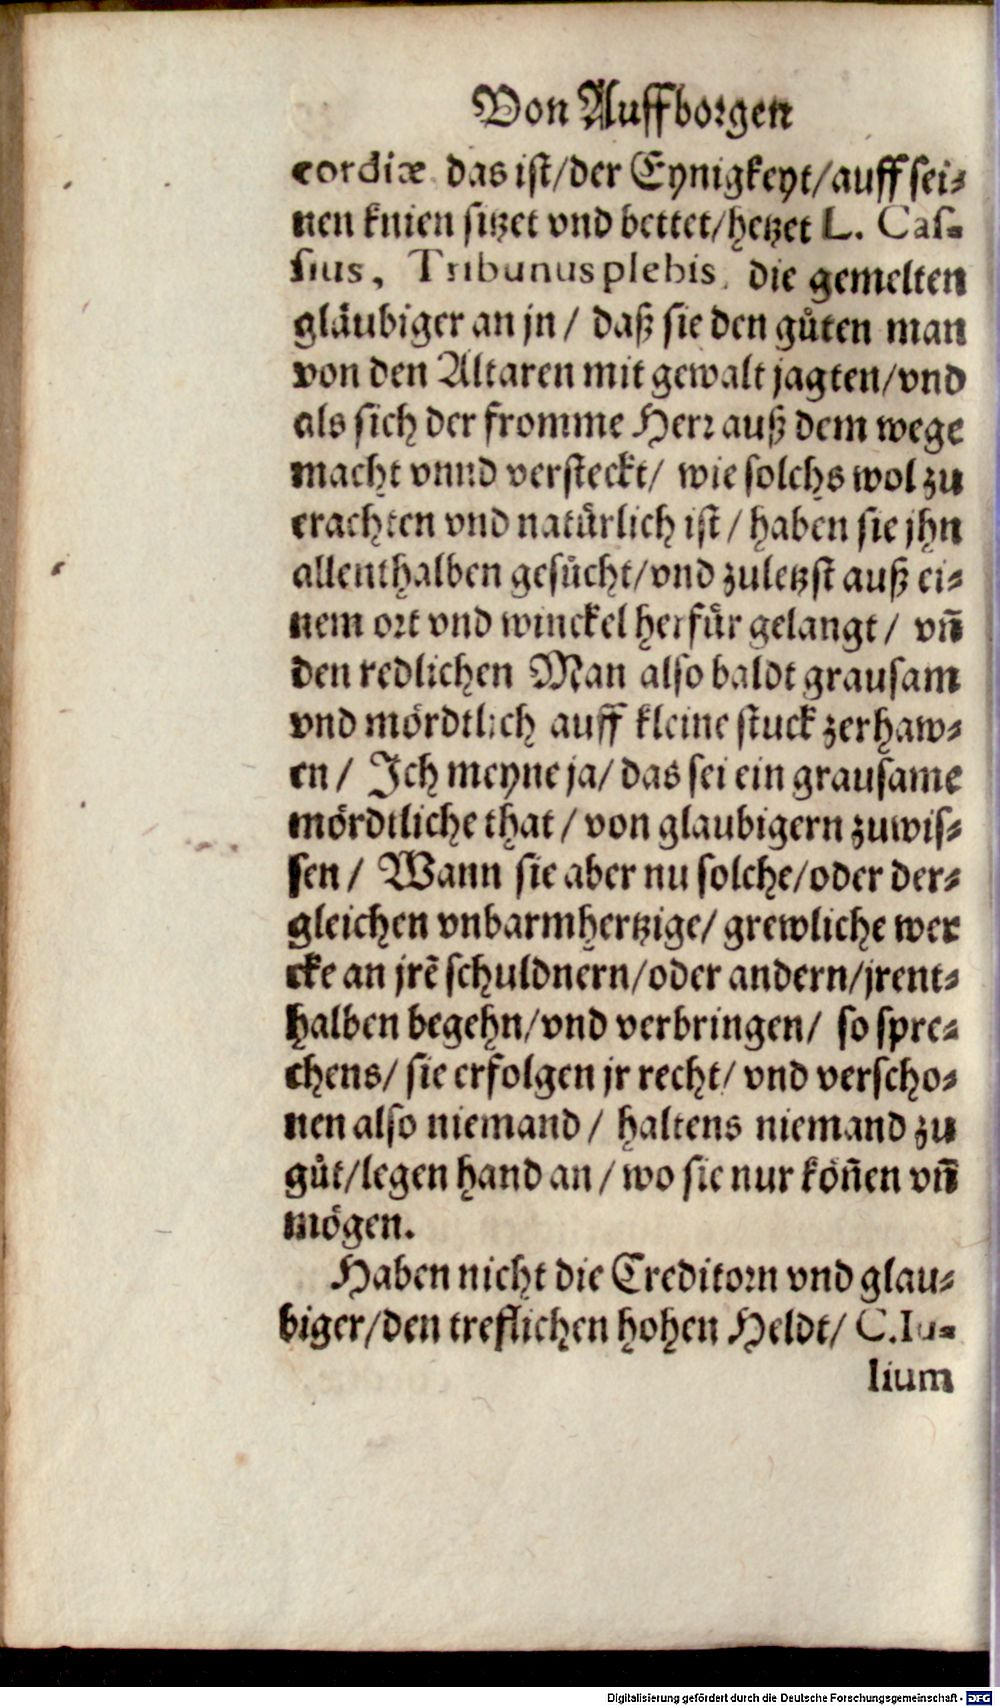 Von Auffborgen
cordiæ das ist/der Eynigkeyt/auff sei-
nen knien sitzet vnd bettet/hetzet L. Cas-
sius, Tribunus plebis, die gemelten
gläubiger an jn / daß sie den gůten man
von den Altaren mit gewalt jagten/vnd
als sich der fromme Herr auß dem wege
macht vnnd versteckt/ wie solchs wol zu
erachten vnd natürlich ist / haben sie jhn
allenthalben gesůcht/vnd zuletzst auß ei-
nem ort vnd winckel herfür gelangt / vn̄
den redlichen Man also baldt grausam
vnd mördtlich auff kleine stuck zerhaw-
en / Ich meyne ja/ das sei ein grausame
mördtliche that / von glaubigern zuwis-
sen / Wann sie aber nu solche/oder der-
gleichen vnbarmhertzige/ grewliche wer
cke an jrē schuldnern/oder andern/jrent-
halben begehn/vnd verbringen/ so spre-
chens/ sie erfolgen jr recht/ vnd verscho-
nen also niemand / haltens niemand zu
gůt/legen hand an / wo sie nur kön̄en vn̄
mögen.
Haben nicht die Creditorn vnd glau-
biger/den treflichen hohen Heldt/ C. Iu-
lium
Digitalisierung gefördert durch die Deutsche Forschungsgemeinschaft - DFG